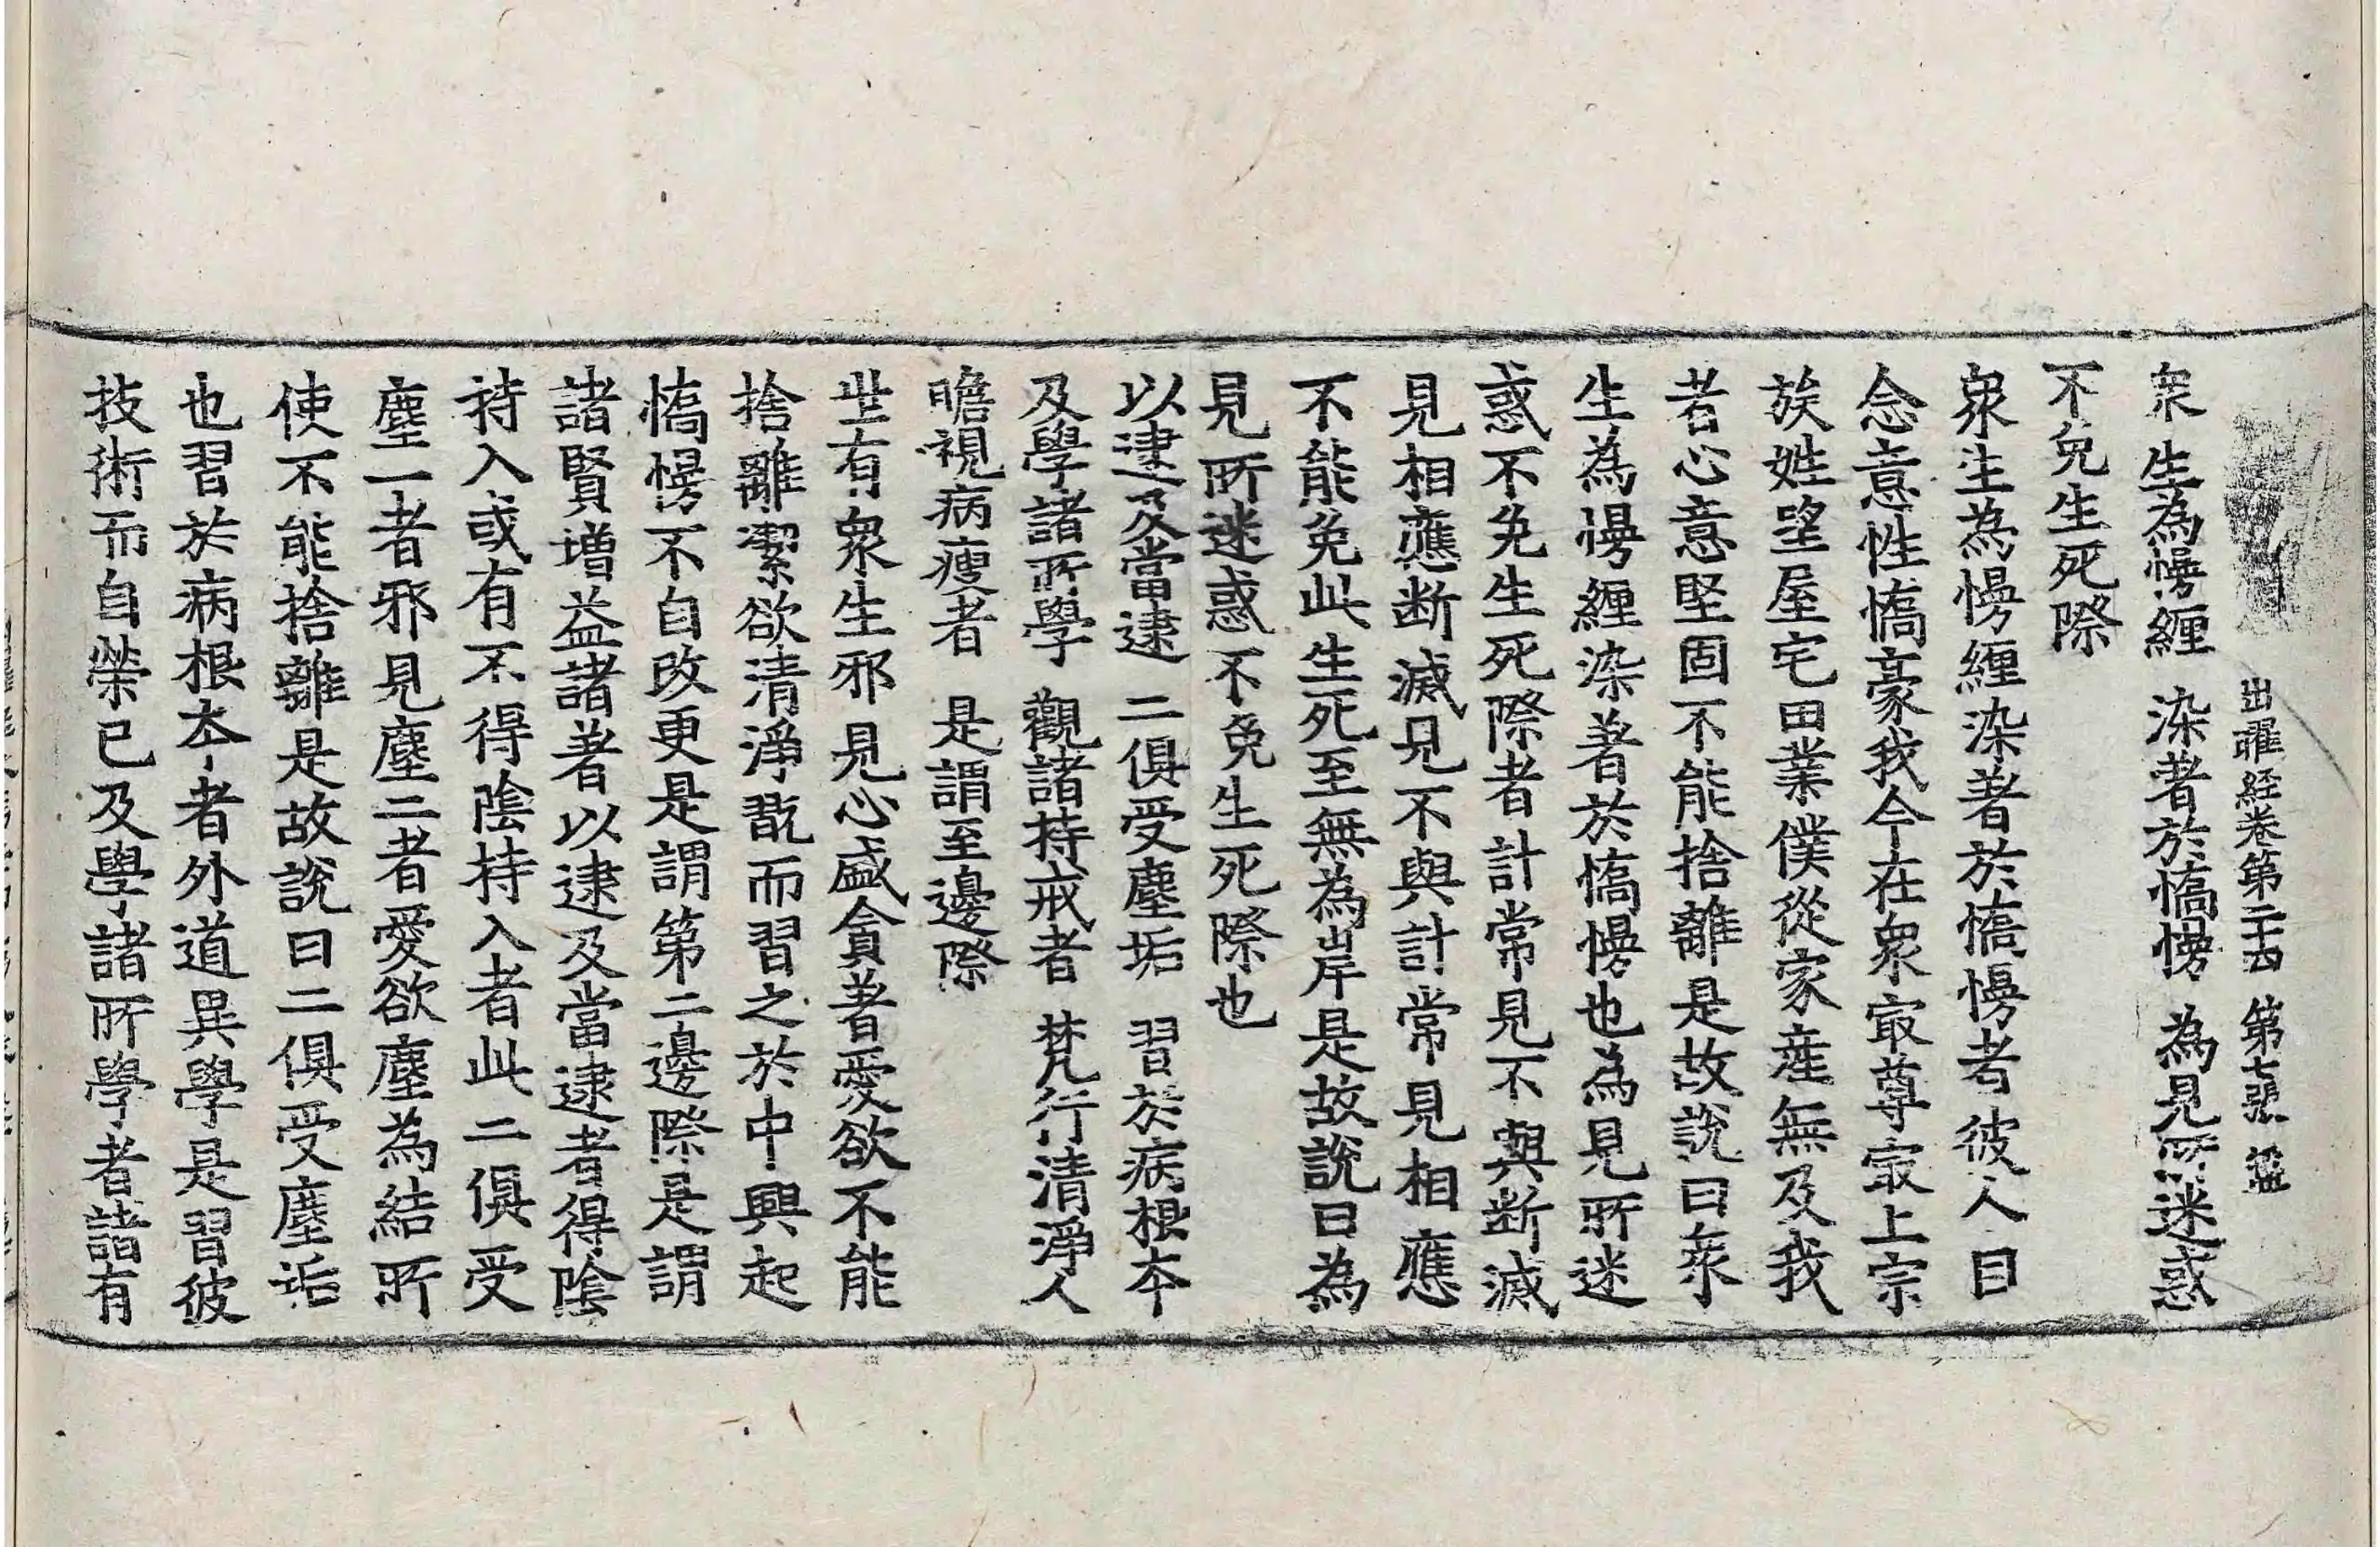 出曜経卷第二十四 第七張
衆生為慢纏 染著於憍慢 為見所迷惑
不免生死際
衆生為慢纏染著於憍慢者彼人自
念意性憍豪我今在衆冣尊冣上宗
族姓望屋宅田業僕從家産無及我
者心意堅固不能捨離是故說曰衆
生為慢纏染著於憍慢也為見所迷
惑不免生死際者計常見不與断滅
見相應断滅見不與計常見相應
不能免此生死至無為岸是故說曰為
見所迷惑不免生死際也
以逮及當逮 二俱受塵垢 習於病根本
及學諸所學 觀諸持戒者 梵行清淨人
瞻視病瘦者 是謂至邊際
世有衆生邪見心盛貪著愛欲不能
捨離潔欲清淨翫而習之於中興起
憍慢不自改更是謂第二邊際是謂
諸賢增益諸著以逮及當逮者得陰
持入或有不得陰持入者此二俱受
塵一者邪見塵二者愛欲塵為結所
使不能捨離是故說曰二俱受塵垢
也習於病根本者外道異學是習彼
技術而自榮己及學諸所學者諸有